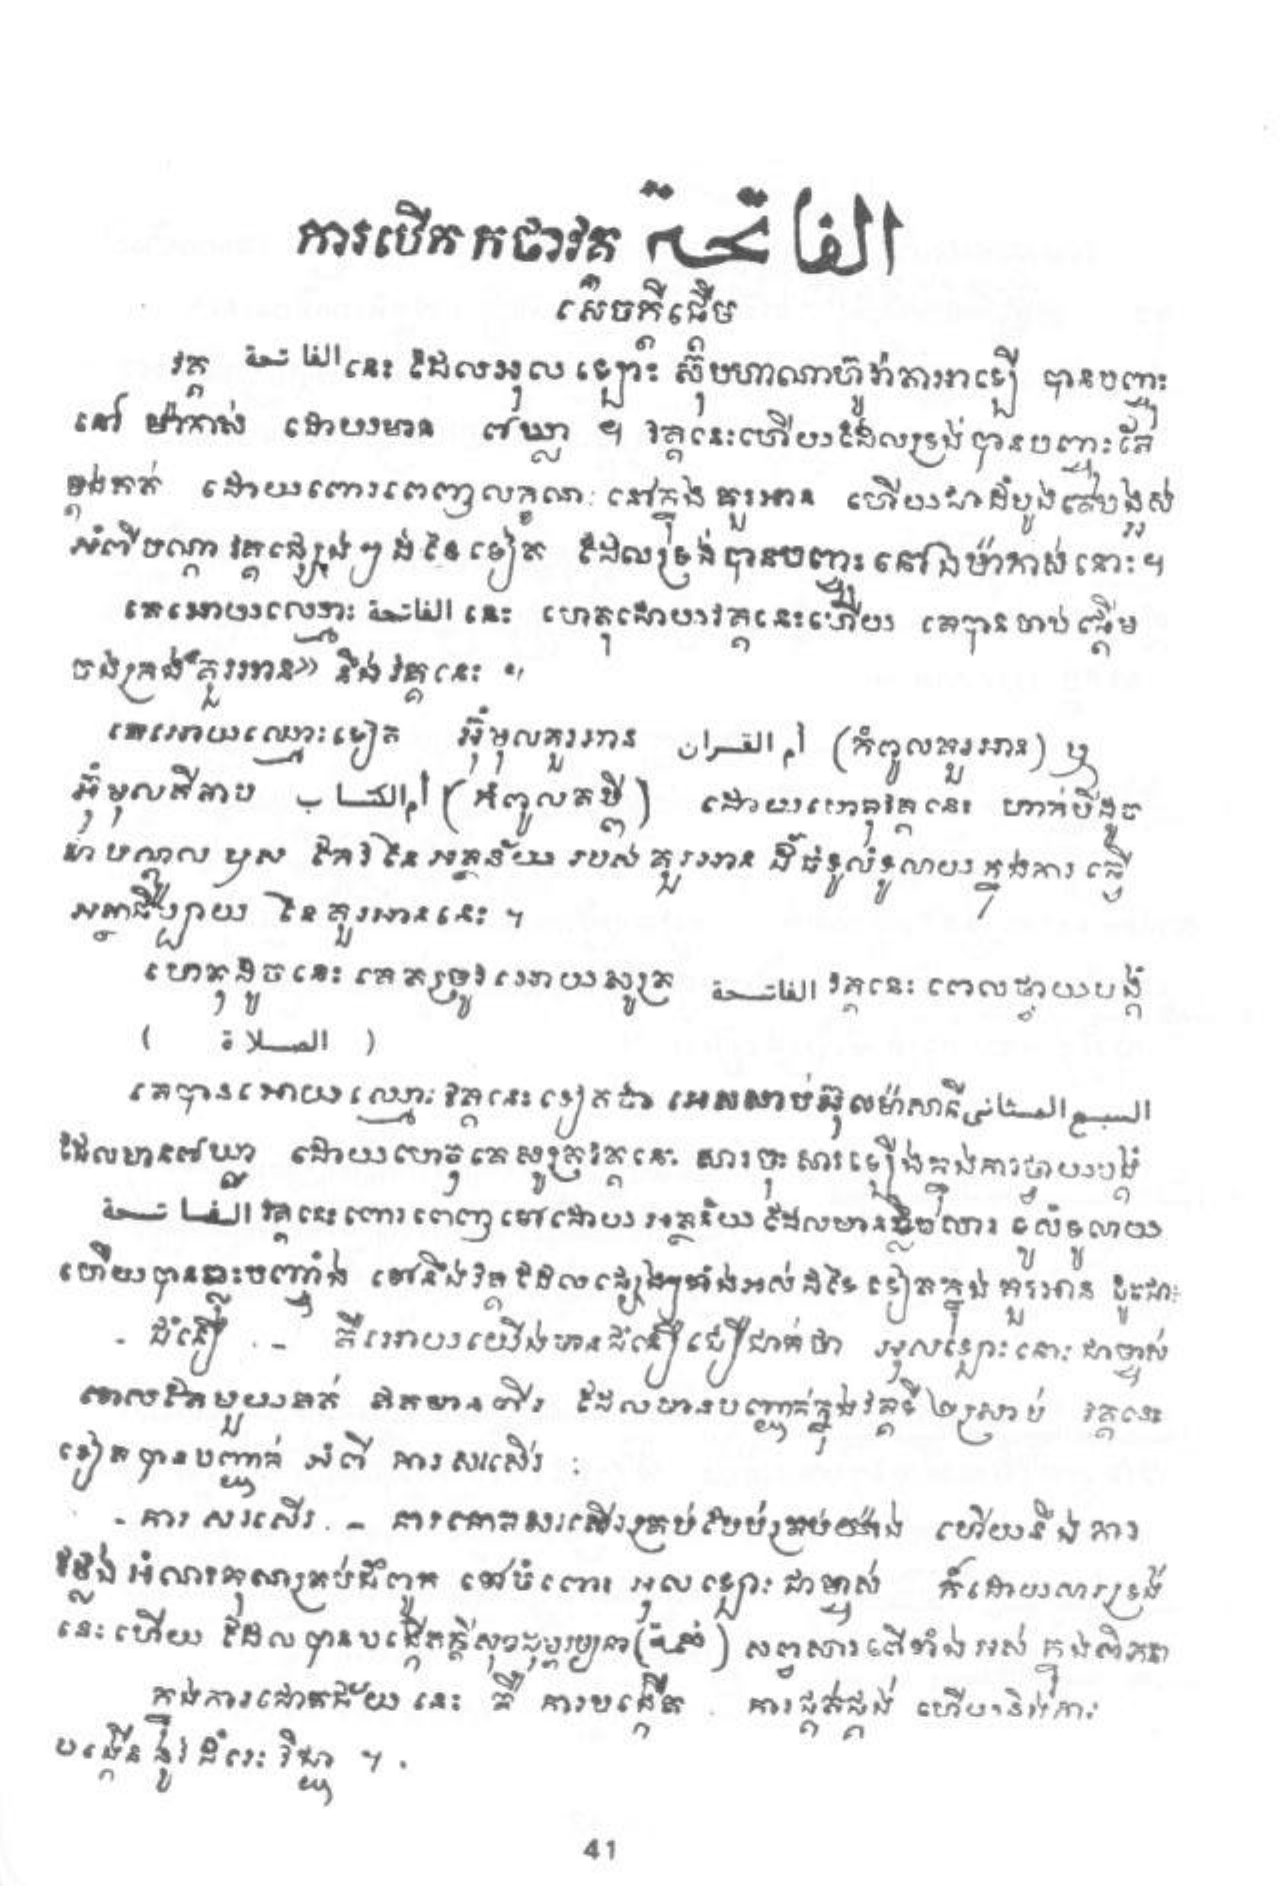 ការបើកកថាវគ្គ الفاتحة
សេចក្ដីផ្ដើម
វគ្គ الفاتحة នេះ ដែលអុលឡោះ ស៊ុបហាណាហ៊ូវ៉ាតាអាឡើ បានបញ្ចុះ
នៅ ម៉ាកាស់ ដោយមាន ៧ឃ្លា ។ វគ្គនេះហើយដែលទ្រង់បានបញ្ចុះតែ
ម្ដងគត់ ដោយពោរពេញលក្ខណៈ នៅក្នុង គួរអាន ហើយជាដំបូងគេបង្អស់
អំពីបណ្ដាវគ្គផ្សេងៗដទៃទៀត ដែលទ្រង់បានបញ្ចុះនៅឯម៉ាកាស់នោះ។
គេអោយឈ្មោះ الفاتحة នេះ ហេតុដោយវគ្គនេះហើយ គេបានចាប់ផ្ដើម
ចងក្រង«គួរអាន» នឹងវគ្គនេះ ។
គេអោយឈ្មោះទៀត អ៊ុំមុលគួរអាន أم القران (កំពូលគួរអាន) ឬ
អ៊ុំមុលគីតាប أم الكتاب (កំពូលគម្ពី) ដោយហេតុវគ្គនេះ ហាក់បីដូច
ជាបណ្ដូលឫស កែវនៃអត្ថន័យ របស់ គួរអាន ដ៏ធំទូលំទូលាយក្នុងការ ធ្វើ
អត្ថាធិប្បាយ នៃគួរអាននេះ ។
ហេតុដូចនេះ គេតម្រូវអោយសូត្រ الفاتحة វគ្គនេះ ពេលថ្វាយបង្គំ
( الصلاة )
គេបានអោយឈ្មោះវគ្គនេះទៀតជា អេសសាប់អ៊ុលម៉ាសានី السبع المثاني
ដែលមាន៧ឃ្លា ដោយហេតុគេសូត្រវគ្គនេះ សារចុះសារឡើងក្នុងការថ្វាយបង្គំ
الفاتحة វគ្គនេះពោរពេញទៅដោយ អត្ថន័យ ដែលមានខ្លឹមសារ ទូលំទូលាយ
ហើយបានឆ្លុះបញ្ចាំង ទៅនឹងវគ្គដែលផ្សេងៗទាំងអស់ដទៃទៀតក្នុង គួរអាន ដូចជាៈ
- ជំនឿ .- គឺអោយយើងមានជំនឿជឿជាក់ថា អុលឡោះនោះ ជាម្ចាស់
តែមួយគត់ ឥតមានពីរ ដែលមានបញ្ជាក់ក្នុងវគ្គទី ២ស្រាប់ វគ្គនេះ
ទៀតបានបញ្ជាក់ អំពី ការសរសើរ :
- ការ សរសើរ .- ការកោតសរសើរគ្រប់បែបគ្រប់យ៉ាង ហើយនឹងការ
ថ្លែងអំណរគុណគ្រប់ជំពូក ទៅចំពោះ អុលឡោះជាម្ចាស់ ក៏ដោយសារទ្រង់
នេះហើយ ដែលបានបង្កើតក្ដីសុខដុម្យរម្យនា ( نعمة ) សព្វសារពើទាំងអស់ ក្នុងពិភព
ក្នុងការជោគជ័យ នេះ គឺ ការបង្កើត . ការផ្គត់ផ្គង់ ហើយនិងការ
បង្កើននូវជំរេះវិជ្ជា ។.
41